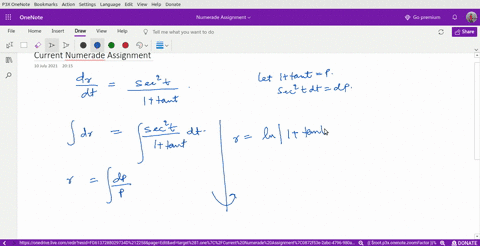 P3X OneNote Bookmarks Action Settings Language Edit Debug Download Help Donate
OneNote
Go premium
File Home Insert Draw View Help Tell me what you want to do
Current Numerade Assignment
10 July 2023 20:15
dr/dt = sec²t/(1+tant)
let 1+tant = p.
sec²t dt = dp.
∫ dr = ∫ sec²t/(1+tant) dt.
r = ∫ dp/p
r = ln|1+tant